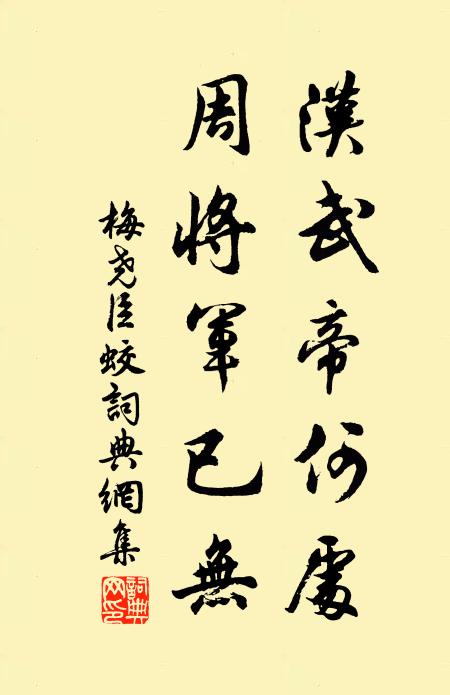 漢武帝何處
周將軍已無
梅堯臣蛟詞典網集
詞典網印